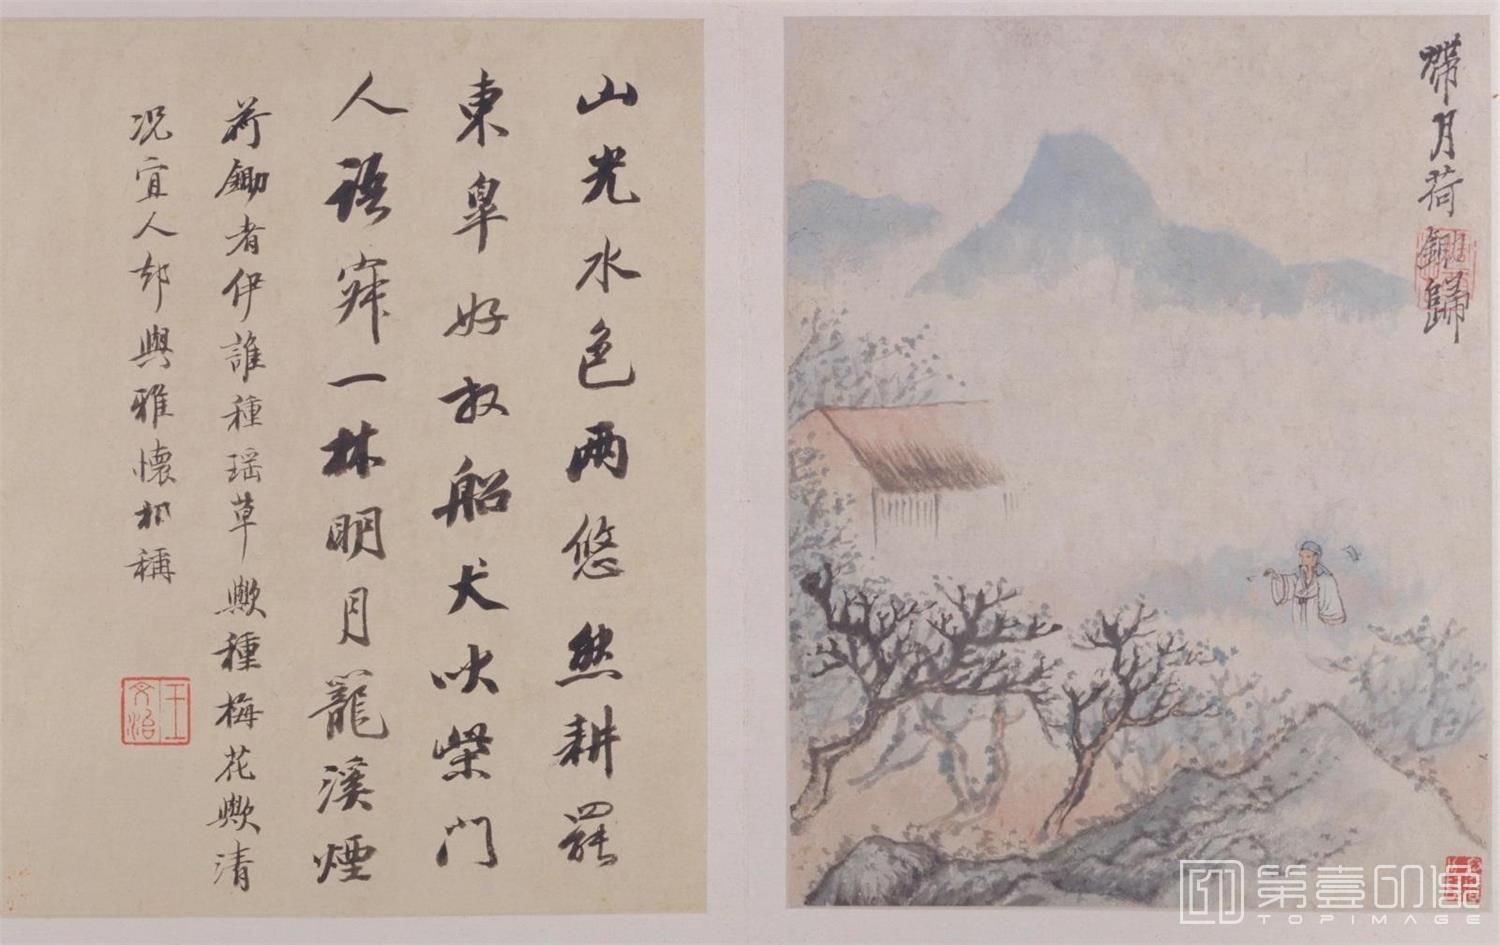 帶月荷鋤歸
山光水色兩悠然耕罷
東皐好放船犬吠柴門
人語寂一林明月籠溪煙
荷鋤者伊誰種瑶草歟種梅花歟清
况宜人却與雅懷相稱
王文治
第壹印像
TOPIMAGE